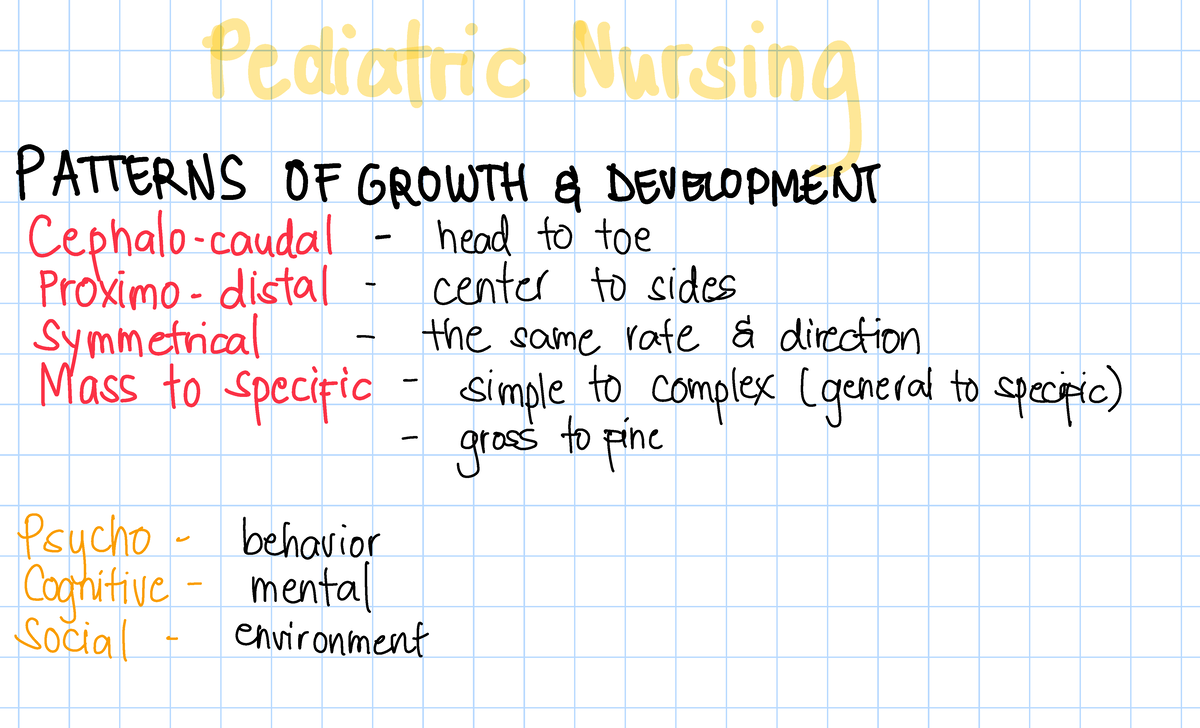 Pediatric Nursing
PATTERNS OF GROWTH & DEVELOPMENT
Cephalo-caudal - head to toe
Proximo-distal - center to sides
Symmetrical - the same rate & direction
Mass to specific - simple to complex (general to specific)
- gross to fine
Psycho - behavior
Cognitive - mental
Social - environment